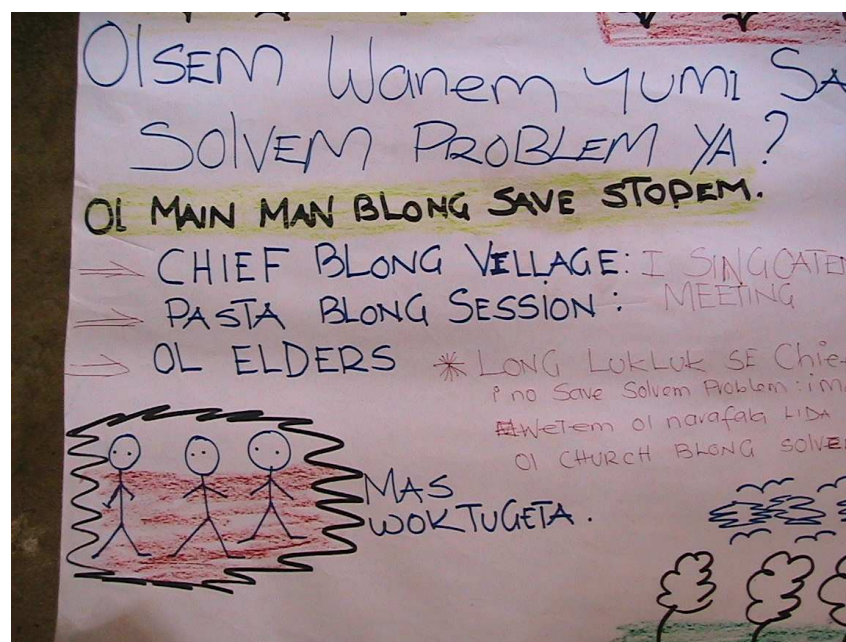 OlSEM Wanem YUMI SA
SOlVEM PROBLEM YA?
Ol MAIN MAN BLONG SAVE STOPEM.
CHIEF BLONG VILLAGE: I SINGOATEM
PASTA BLONG SESSION: MEETING
OL ELDERS * LONG LUKLUK SE Chie
i no Save Solvem Problem: i
Wetem ol narafala LIDA
Ol CHURCH BLONG SOLVE
MAS
WOK TUGETA.